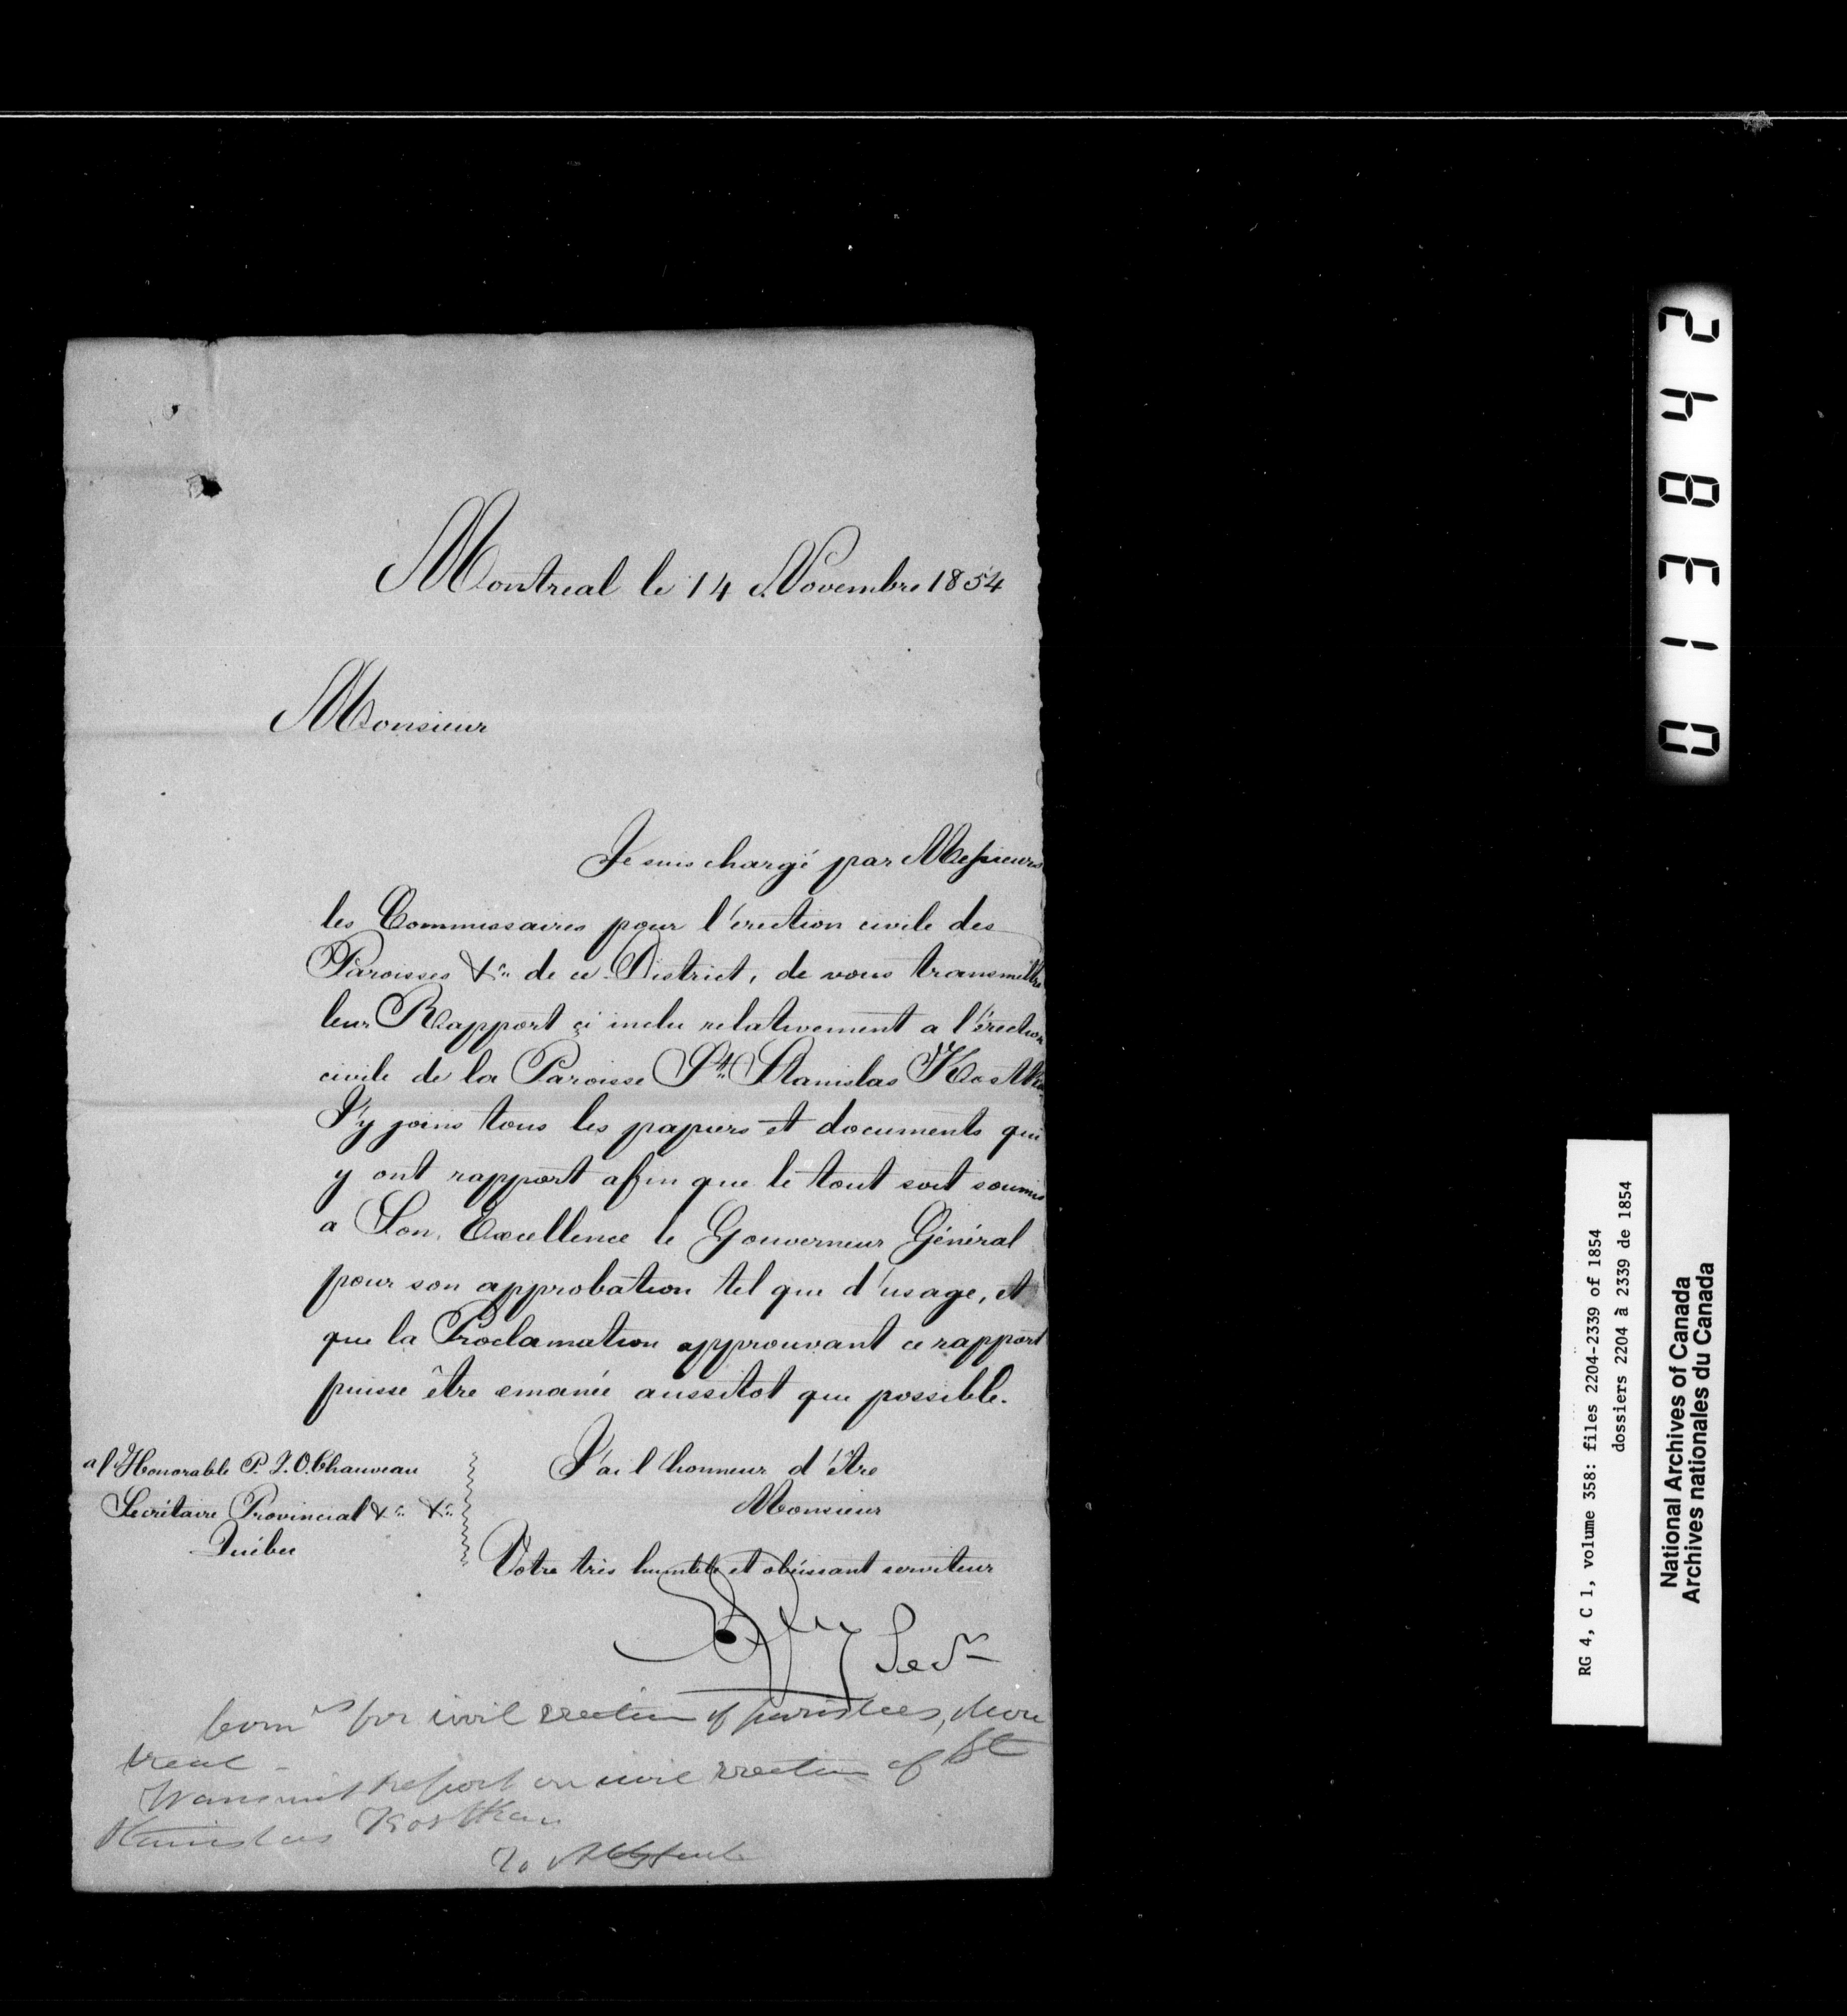 Montreal le 14 Novembre 1854
Monsieur
Je suis chargé par Messieurs
les Commissaires pour l'érection civile des
Paroisses &c. de ce District, de vous transmettre
leur Rapport çi inclu relativement a l'érection
civile de la Paroisse St. Stanislas Kostka
J'y joins tous les papiers et documents qui
y ont rapport afin que le tout soit soumis
a Son Excellence le Gouverneur Général
pour son approbation tel que d'usage, et
que la Proclamation approuvant ce rapport
puisse être emanée aussitot que possible.
J'ai l'honneur d'être
Monsieur
Votre très humble et obéissant serviteur
Secr
a l'Honorable P. J. O. Chauveau
Secrétaire Provincial &c. &c.
Québec
Comrs for civil erection of parishes, Mon
treal -
Transmit Report on civil erection of St
Stanislas Kostka
To
013842
RG 4, C 1, volume 358: files 2204-2339 of 1854
dossiers 2204 à 2339 de 1854
National Archives of Canada
Archives nationales du Canada